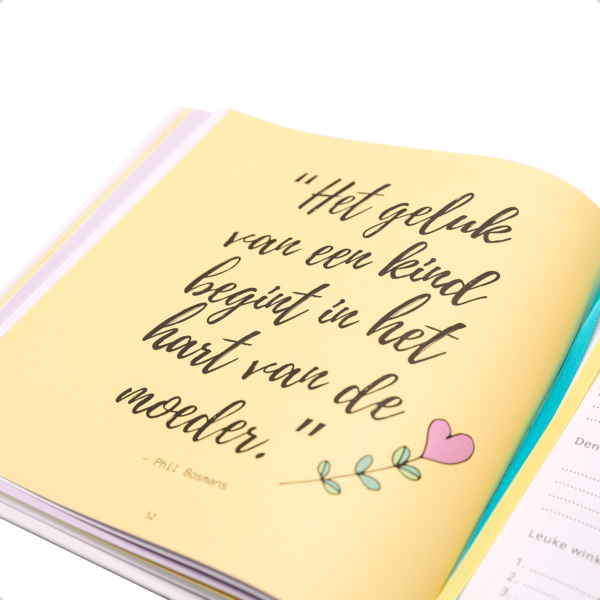 "Het geluk
van een kind
begint in het
hart van de
moeder."
- Phil Bosmans
52
Den
Leuke wink
1.
2.
3.